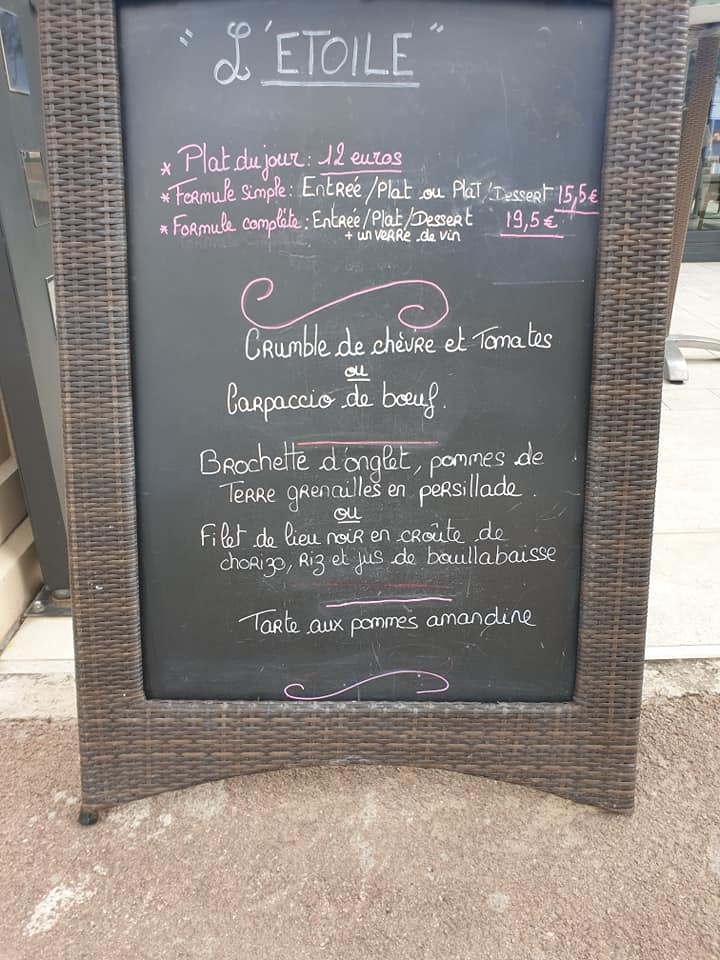 " L'ETOILE "
* Plat du jour : 12 euros
* Formule simple : Entrée/Plat ou Plat/Dessert 15,5€
* Formule complète : Entrée/Plat/Dessert 19,5€
+ un verre de vin
Crumble de chèvre et Tomates
ou
Carpaccio de bœuf.
Brochette d'onglet, pommes de
Terre grenailles en persillade.
ou
Filet de lieu noir en croûte de
chorizo, Riz et jus de bouillabaisse
Tarte aux pommes amandine